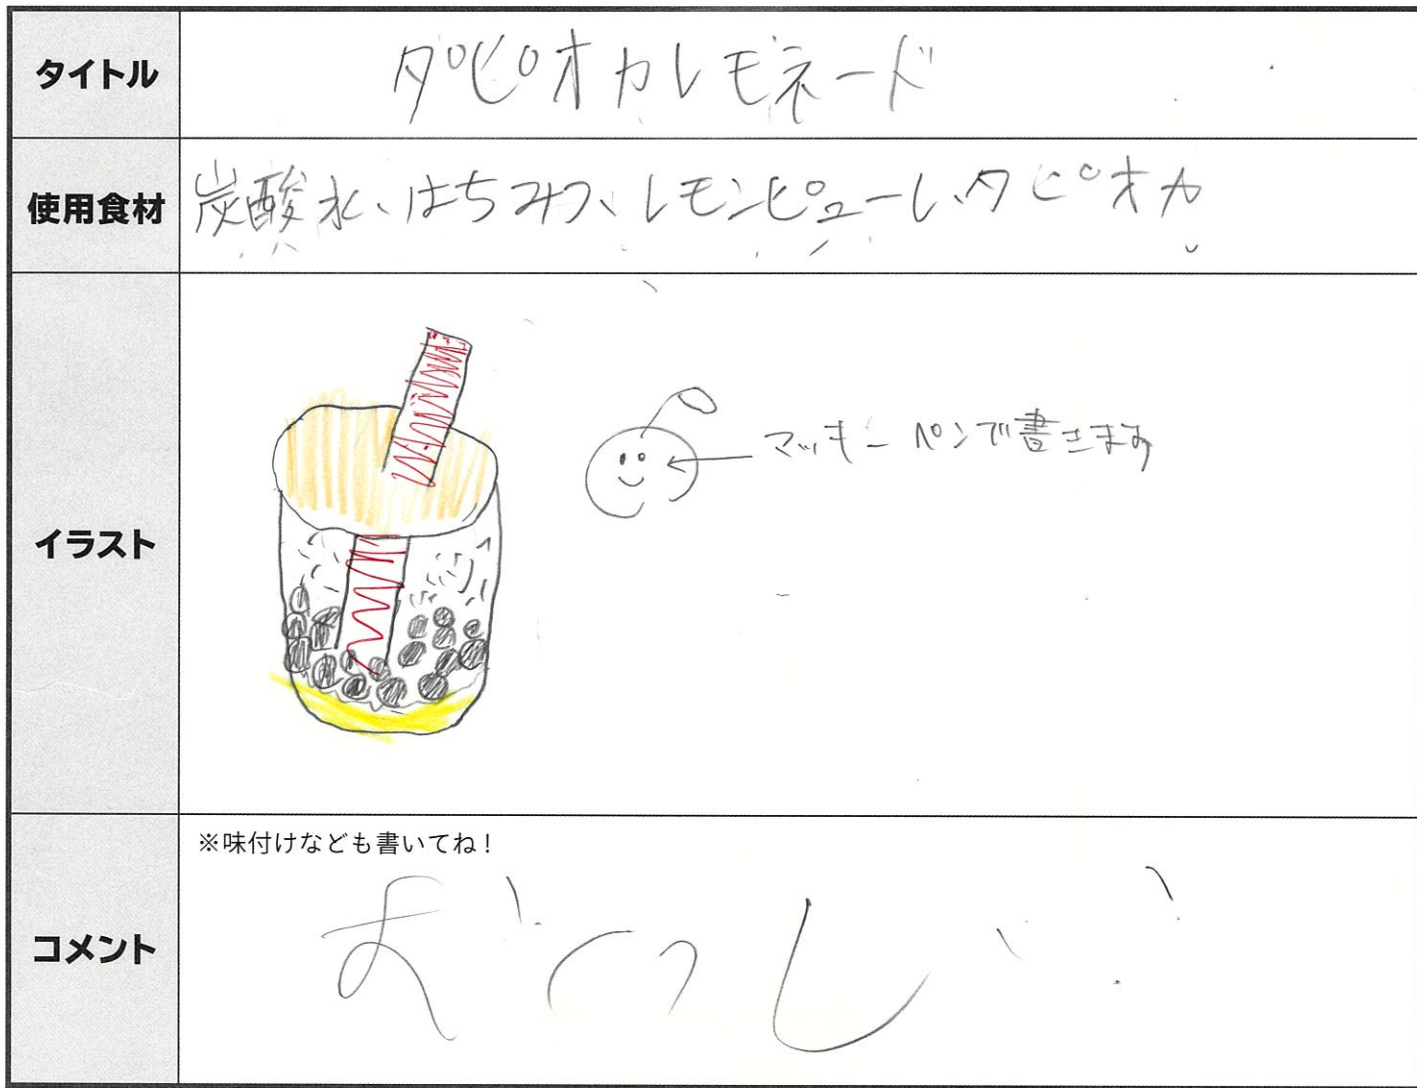 タイトル
タピオカレモネード
使用食材
炭酸水、はちみつ、レモンピューレ、タピオカ
イラスト
マッキーペンで書きます
コメント
※味付けなども書いてね！
おいしい